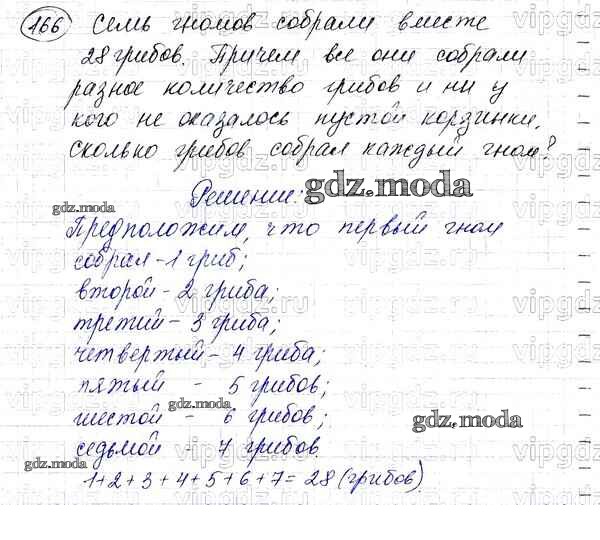 166 Семь гномов собрали вместе
28 грибов. Причем все они собрали
разное количество грибов и ни у
кого не оказалось пустой корзинки.
Сколько грибов собрал каждый гном?
Решение:
gdz.moda
gdz.moda
Предположим, что первый гном
собрал - 1 гриб;
второй - 2 гриба;
третий - 3 гриба;
четвертый - 4 гриба;
пятый - 5 грибов;
gdz.moda
шестой - 6 грибов;
gdz.moda
седьмой - 7 грибов
gdz.moda
1+2+3+4+5+6+7=28 (грибов)